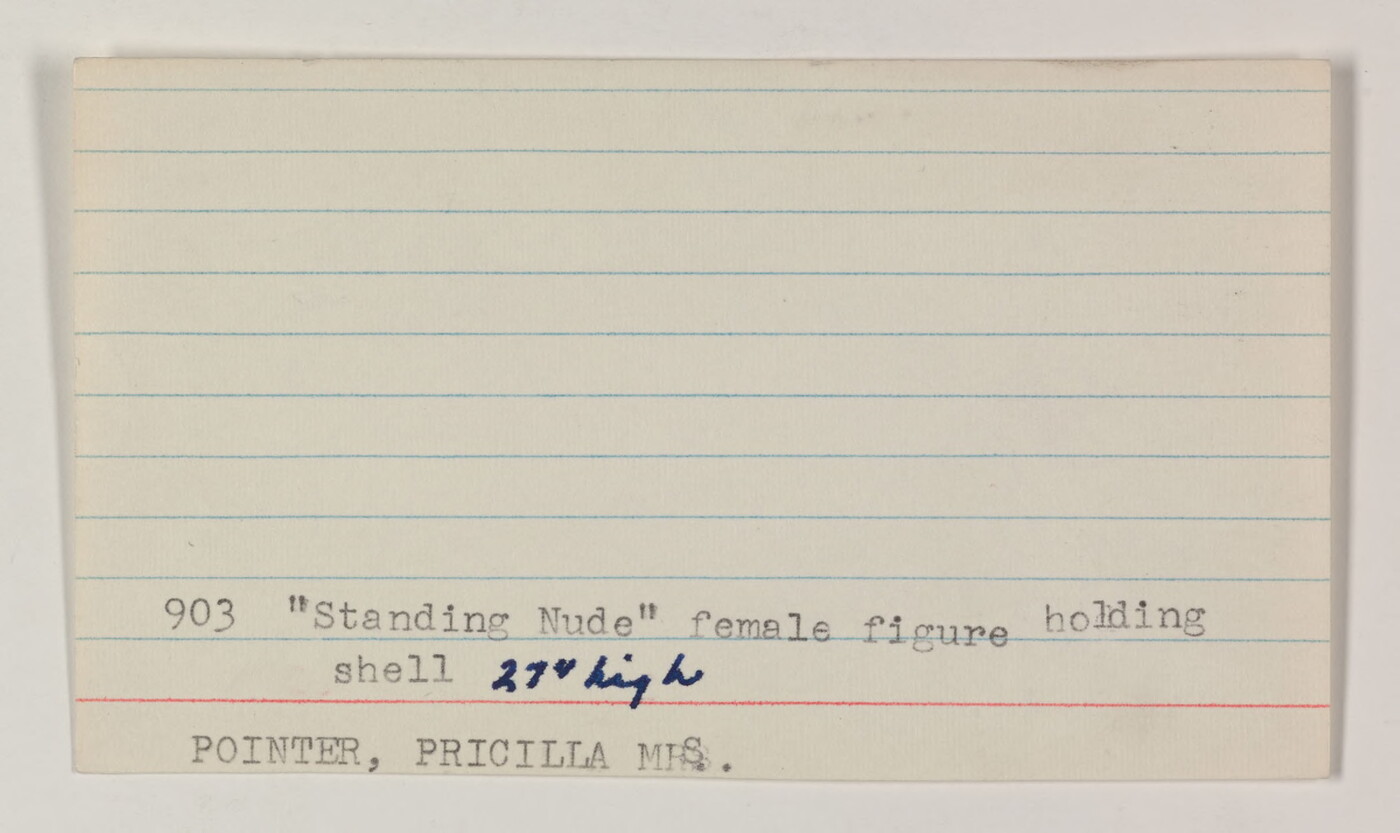 903 "Standing Nude" female figure holding
shell 27" high
POINTER, PRICILLA MRS.